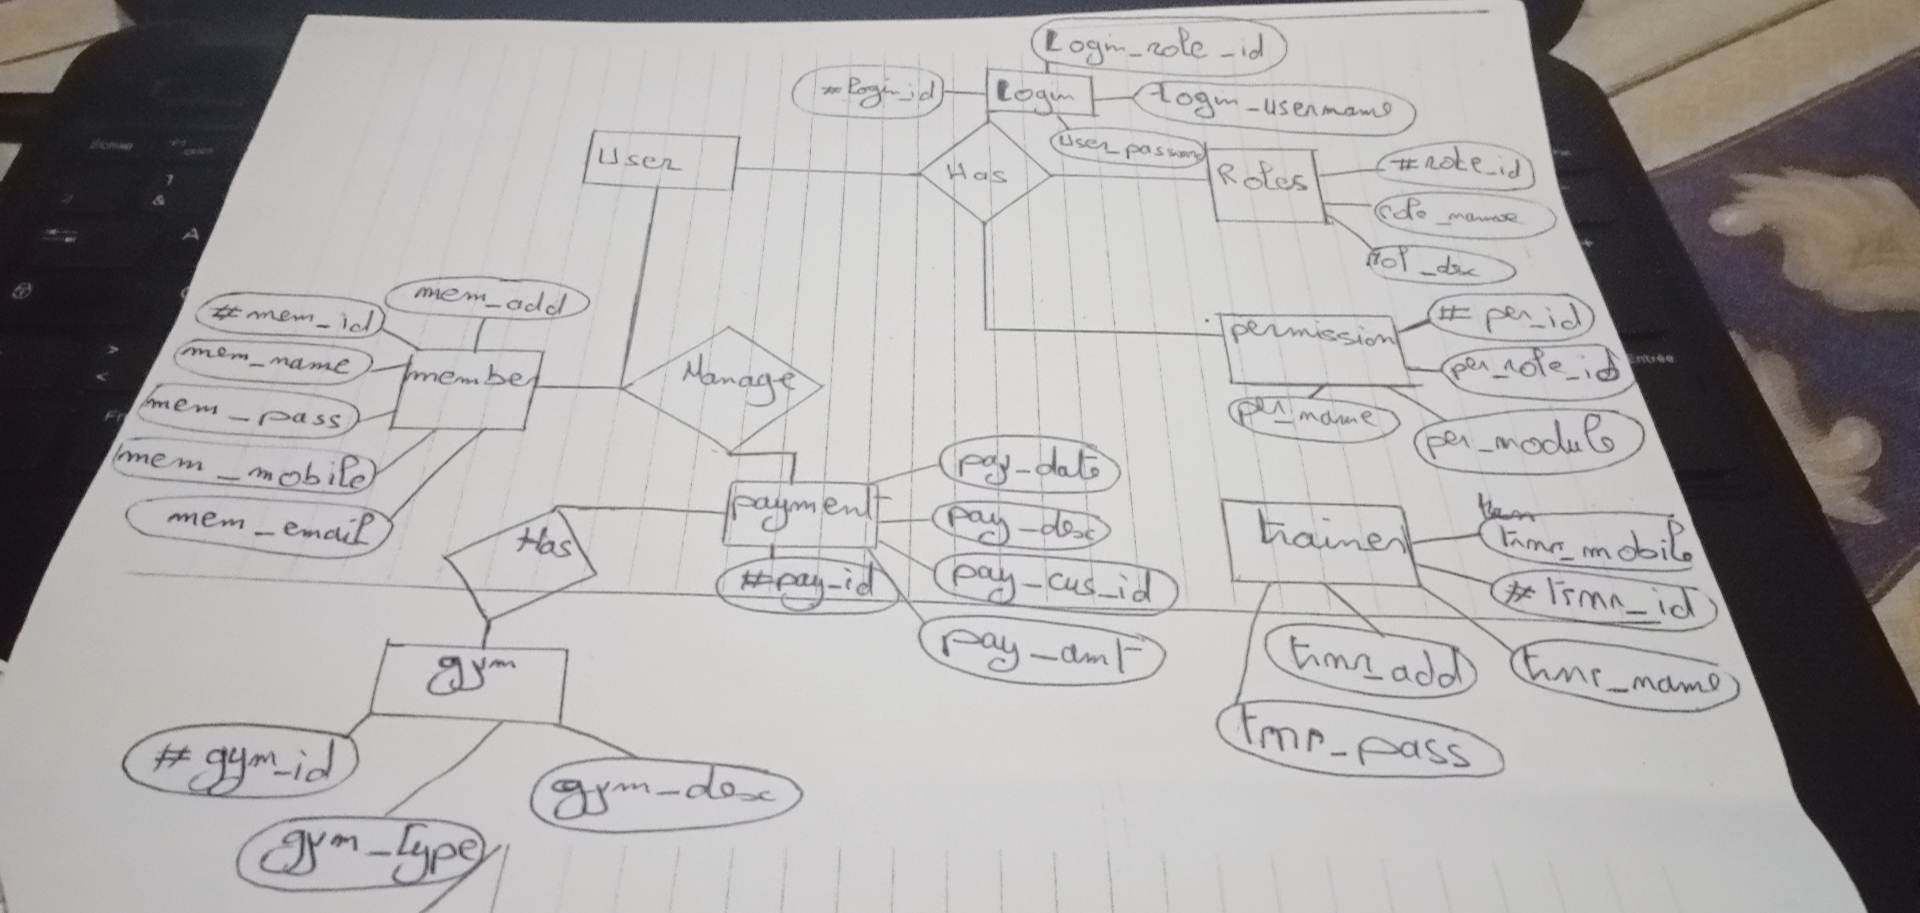 Login_role_id
#login_id
Login
Login_username
User
Has
Roles
#role_id
mem_add
#mem_id
mem_name
member
mem_pass
mem_mobile
mem_email
Manage
permission
# per_id
per_role_id
per_name
per_module
payment
pay_date
pay_desc
pay_cus_id
#pay_id
pay_amt
Has
trainer
trnr_mobile
#trnr_id
trnr_add
trnr_name
trnr_pass
gym
# gym_id
gym_desc
gym_type